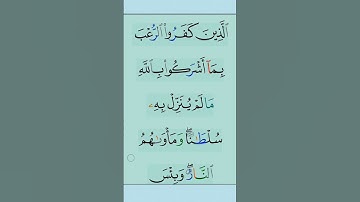 ٱلَّذِينَ كَفَرُوا۟ ٱلرُّعْبَ
بِمَآ أَشْرَكُوا۟ بِٱللَّهِ
مَا لَمْ يُنَزِّلْ بِهِۦ
سُلْطَٰنًا ۖ وَمَأْوَىٰهُمُ
ٱلنَّارُ ۚ وَبِئْسَ